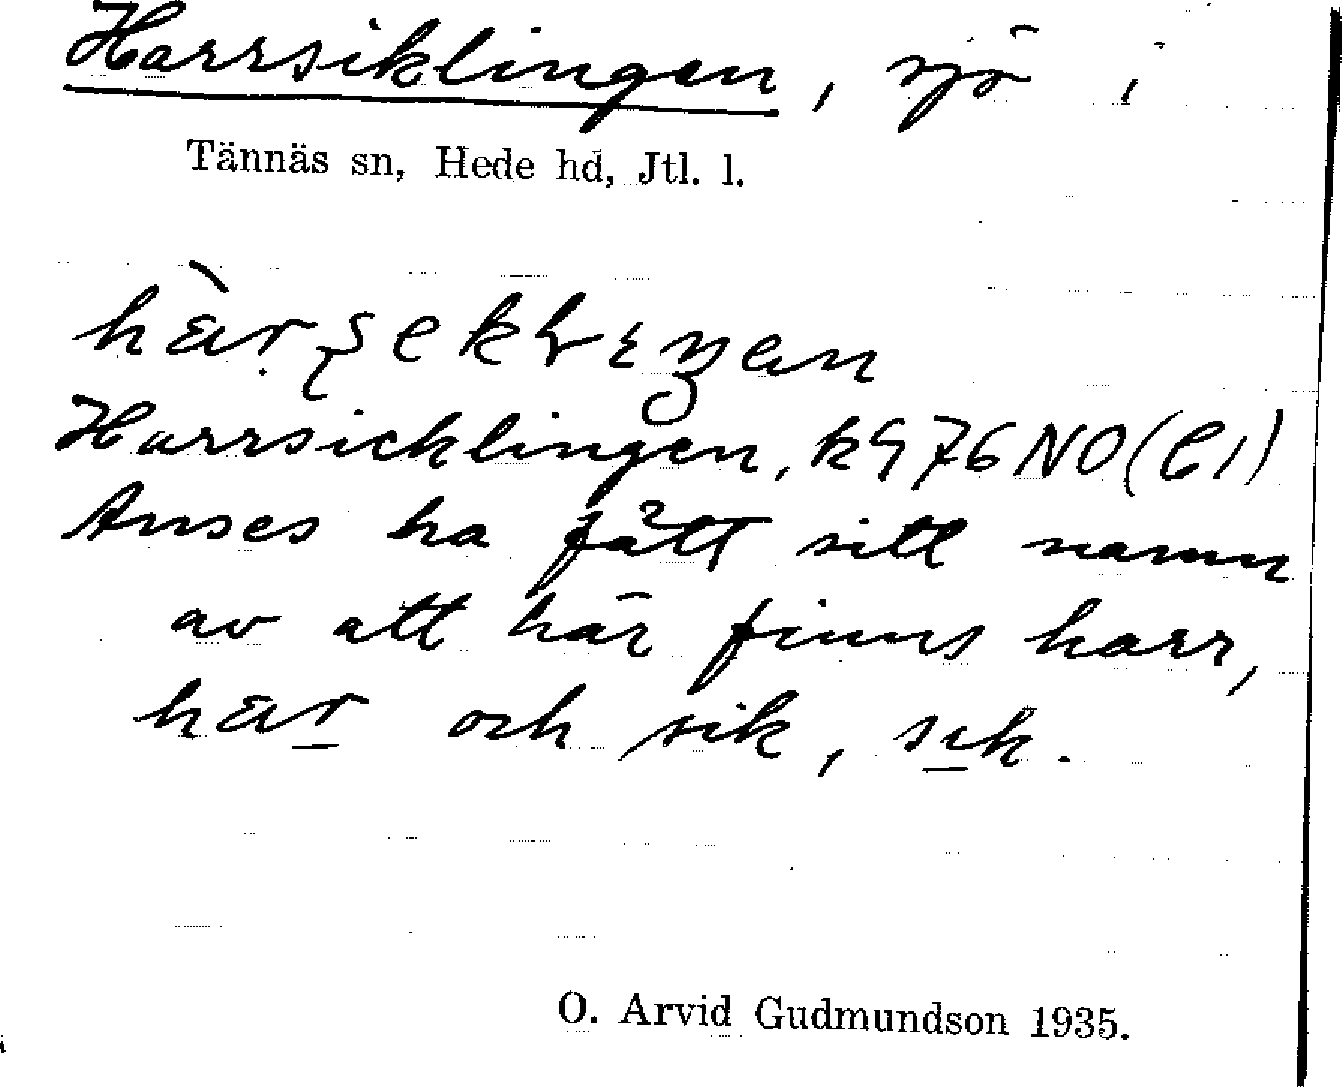 Harrsiklingen, sjö i
Tännäs sn, Hede hd, Jtl. l.
Harrsicklingen, k976NO(C1)
Anses ha fått sitt namn
av att här finns harr,
har och sik, sık.
O. Arvid Gudmundson 1935.